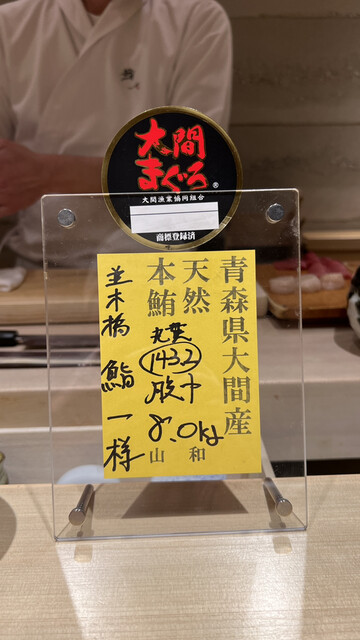 大間
まぐろ®
大間漁業協同組合
商標登録済
青森県大間産
天然
本鮪
1432
腹中
8.0kg
山和
並木橋 鮨一様